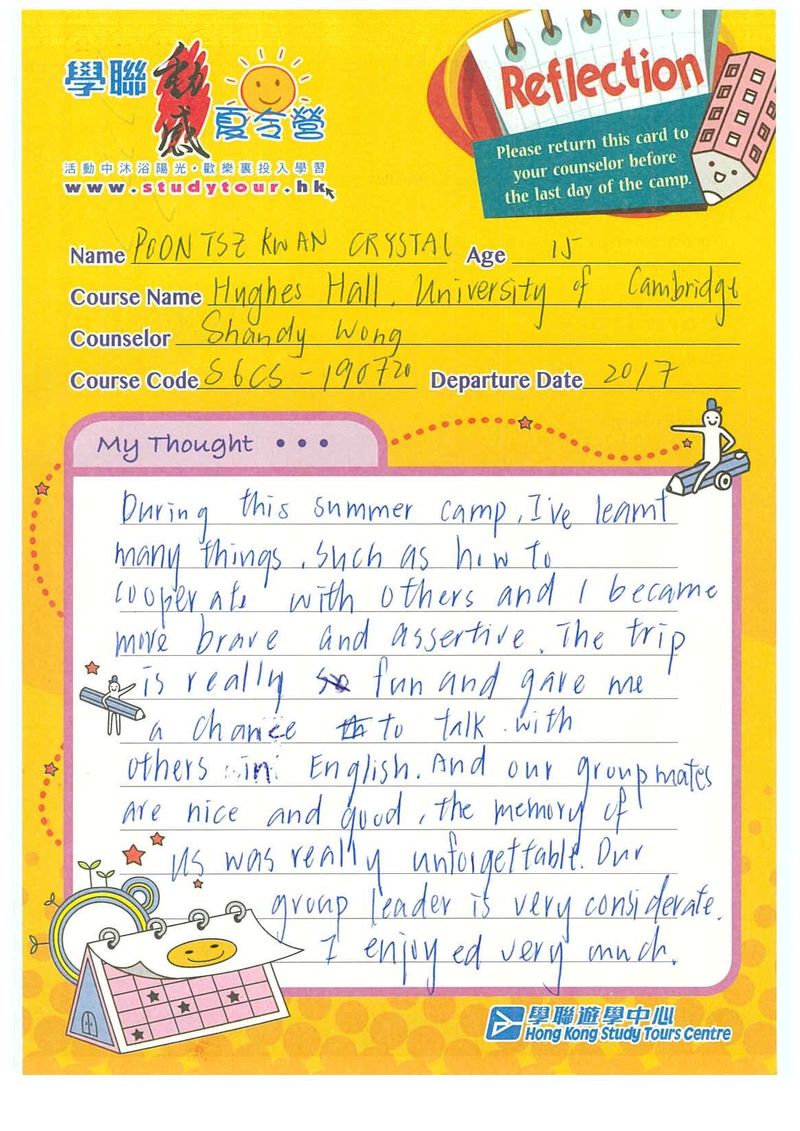 學聯動感夏令營
活動中沐浴陽光·歡樂裏投入學習
www.studytour.hk
Reflection
Please return this card to
your counselor before
the last day of the camp.
Name POON TSZ KWAN CRYSTAL Age 15
Course Name Hughes Hall, University of Cambridge
Counselor Shandy Wong
Course Code S6CS-190720 Departure Date 2017
My Thought •••
During this summer camp, I've learnt
many things, such as how to
cooperate with others and I became
more brave and assertive. The trip
is really so fun and gave me
a chance th to talk with
others in English. And our groupmates
are nice and good, the memory of
us was really unforgettable. Our
group leader is very considerate.
I enjoyed very much.
學聯遊學中心
Hong Kong Study Tours Centre